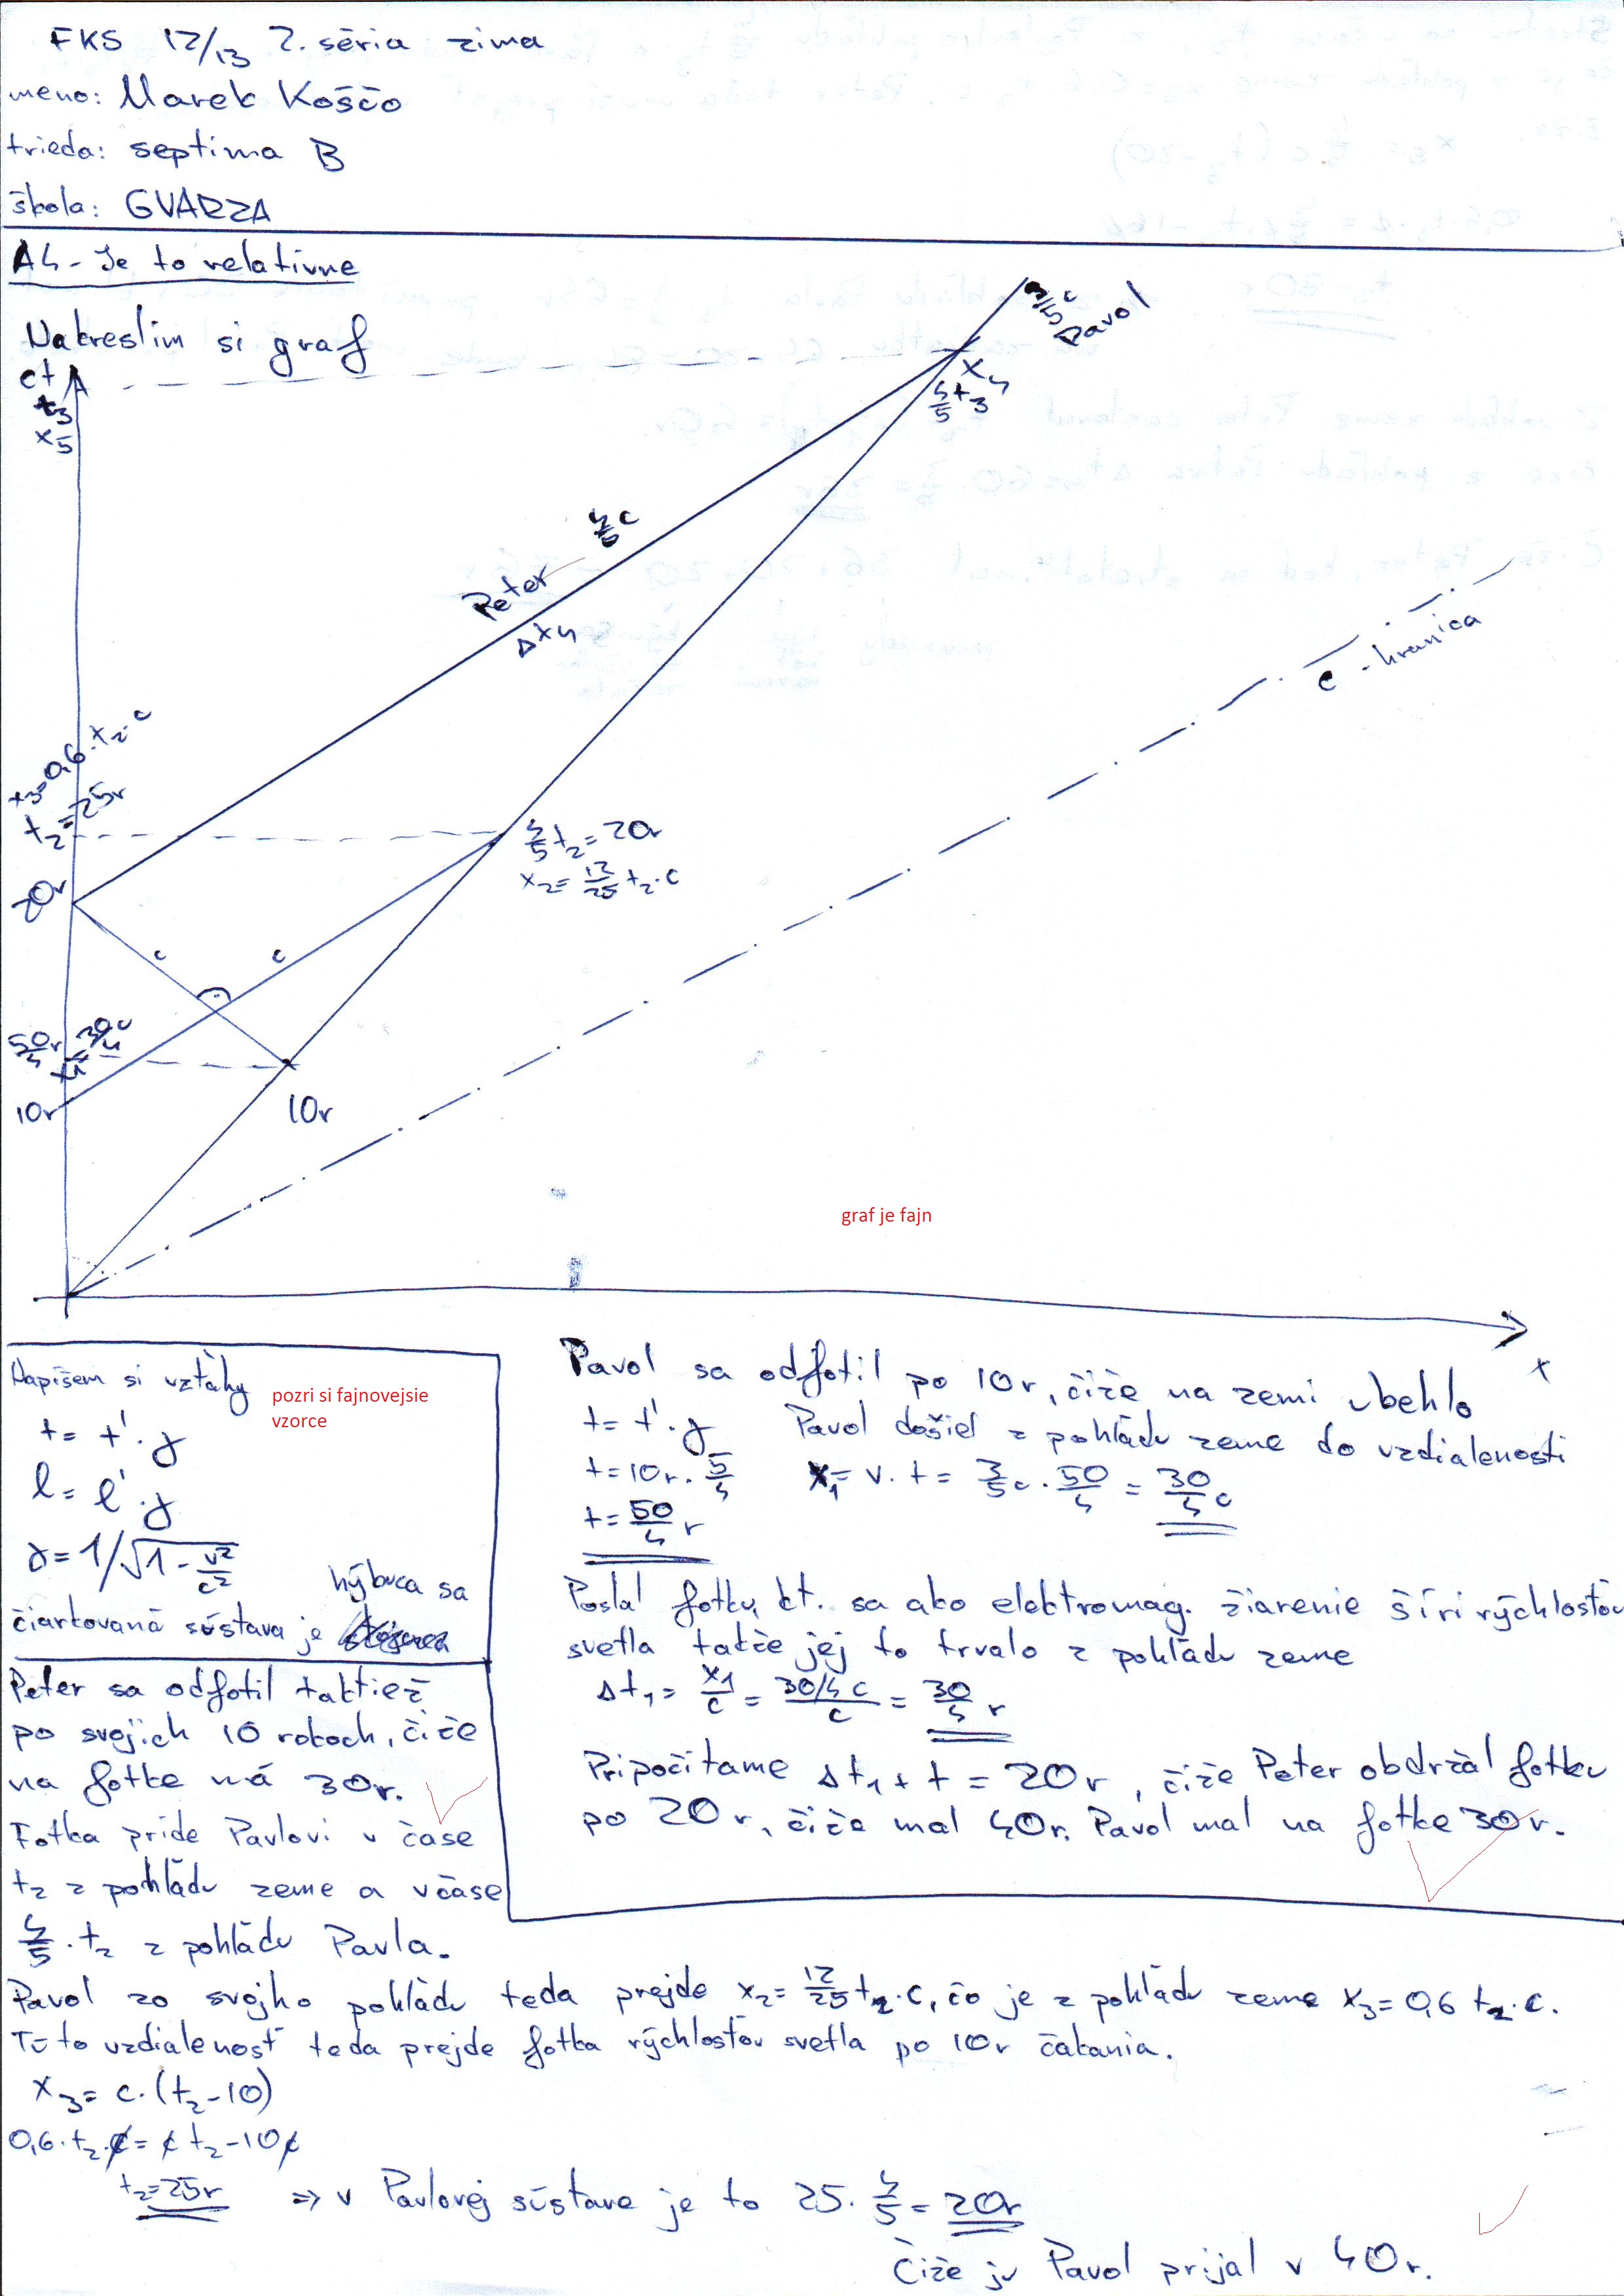 FKS 12/13 2. séria zima
meno: Marek Koščo
trieda: septima B
škola: GVARZA
A4 - Je to relatívne
Nakreslím si graf
ct
t3
x5
3/5 c
Pavol
x4
4/5 t3
4/5 c
Peter
Δt4
c - hranica
x3=0,6·t2·c
t2=25r
4/5 t2=20r
x2=12/25 t2·c
20r
c
c
50/4 r
x1=30/4 c
10r
10r
graf je fajn
x
Napíšem si vzťahy
pozri si fajnovejsie
vzorce
t= t'·γ
l= l'·γ
γ=1/√1-v²/c²
hýbuca sa
čiarkovaná sústava je
Pavol sa odfotil po 10r, čiže na zemi ubehlo
t= t'·γ Pavol došiel z pohľadu zeme do vzdialenosti
t=10r·5/4 x1= v·t= 3/5 c·50/4 = 30/4 c
t=50/4 r
Poslal fotku, kt. sa ako elektromag. žiarenie šíri rýchlosťou
svetla takže jej to trvalo z pohľadu zeme
Δt1= x1/c = 30/4 c/c = 30/4 r
Pripočítame Δt1+t=20r, čiže Peter obdržal fotku
po 20r, čiže mal 40r. Pavol mal na fotke 30r.
Peter sa odfotil taktiež
po svojich 10 rokoch, čiže
na fotke má 30r.
Fotka príde Pavlovi v čase
t2 z pohľadu zeme a v čase
4/5·t2 z pohľadu Pavla.
Pavol zo svojho pohľadu teda prejde x2=12/25 t2·c, čo je z pohľadu zeme x3=0,6 t2·c.
Túto vzdialenosť teda prejde fotka rýchlosťou svetla po 10r čakania.
x3= c·(t2-10)
0,6·t2·c=c t2-10c
t2=25r => v Pavlovej sústave je to 25·4/5=20r
Čiže ju Pavol prijal v 40r.